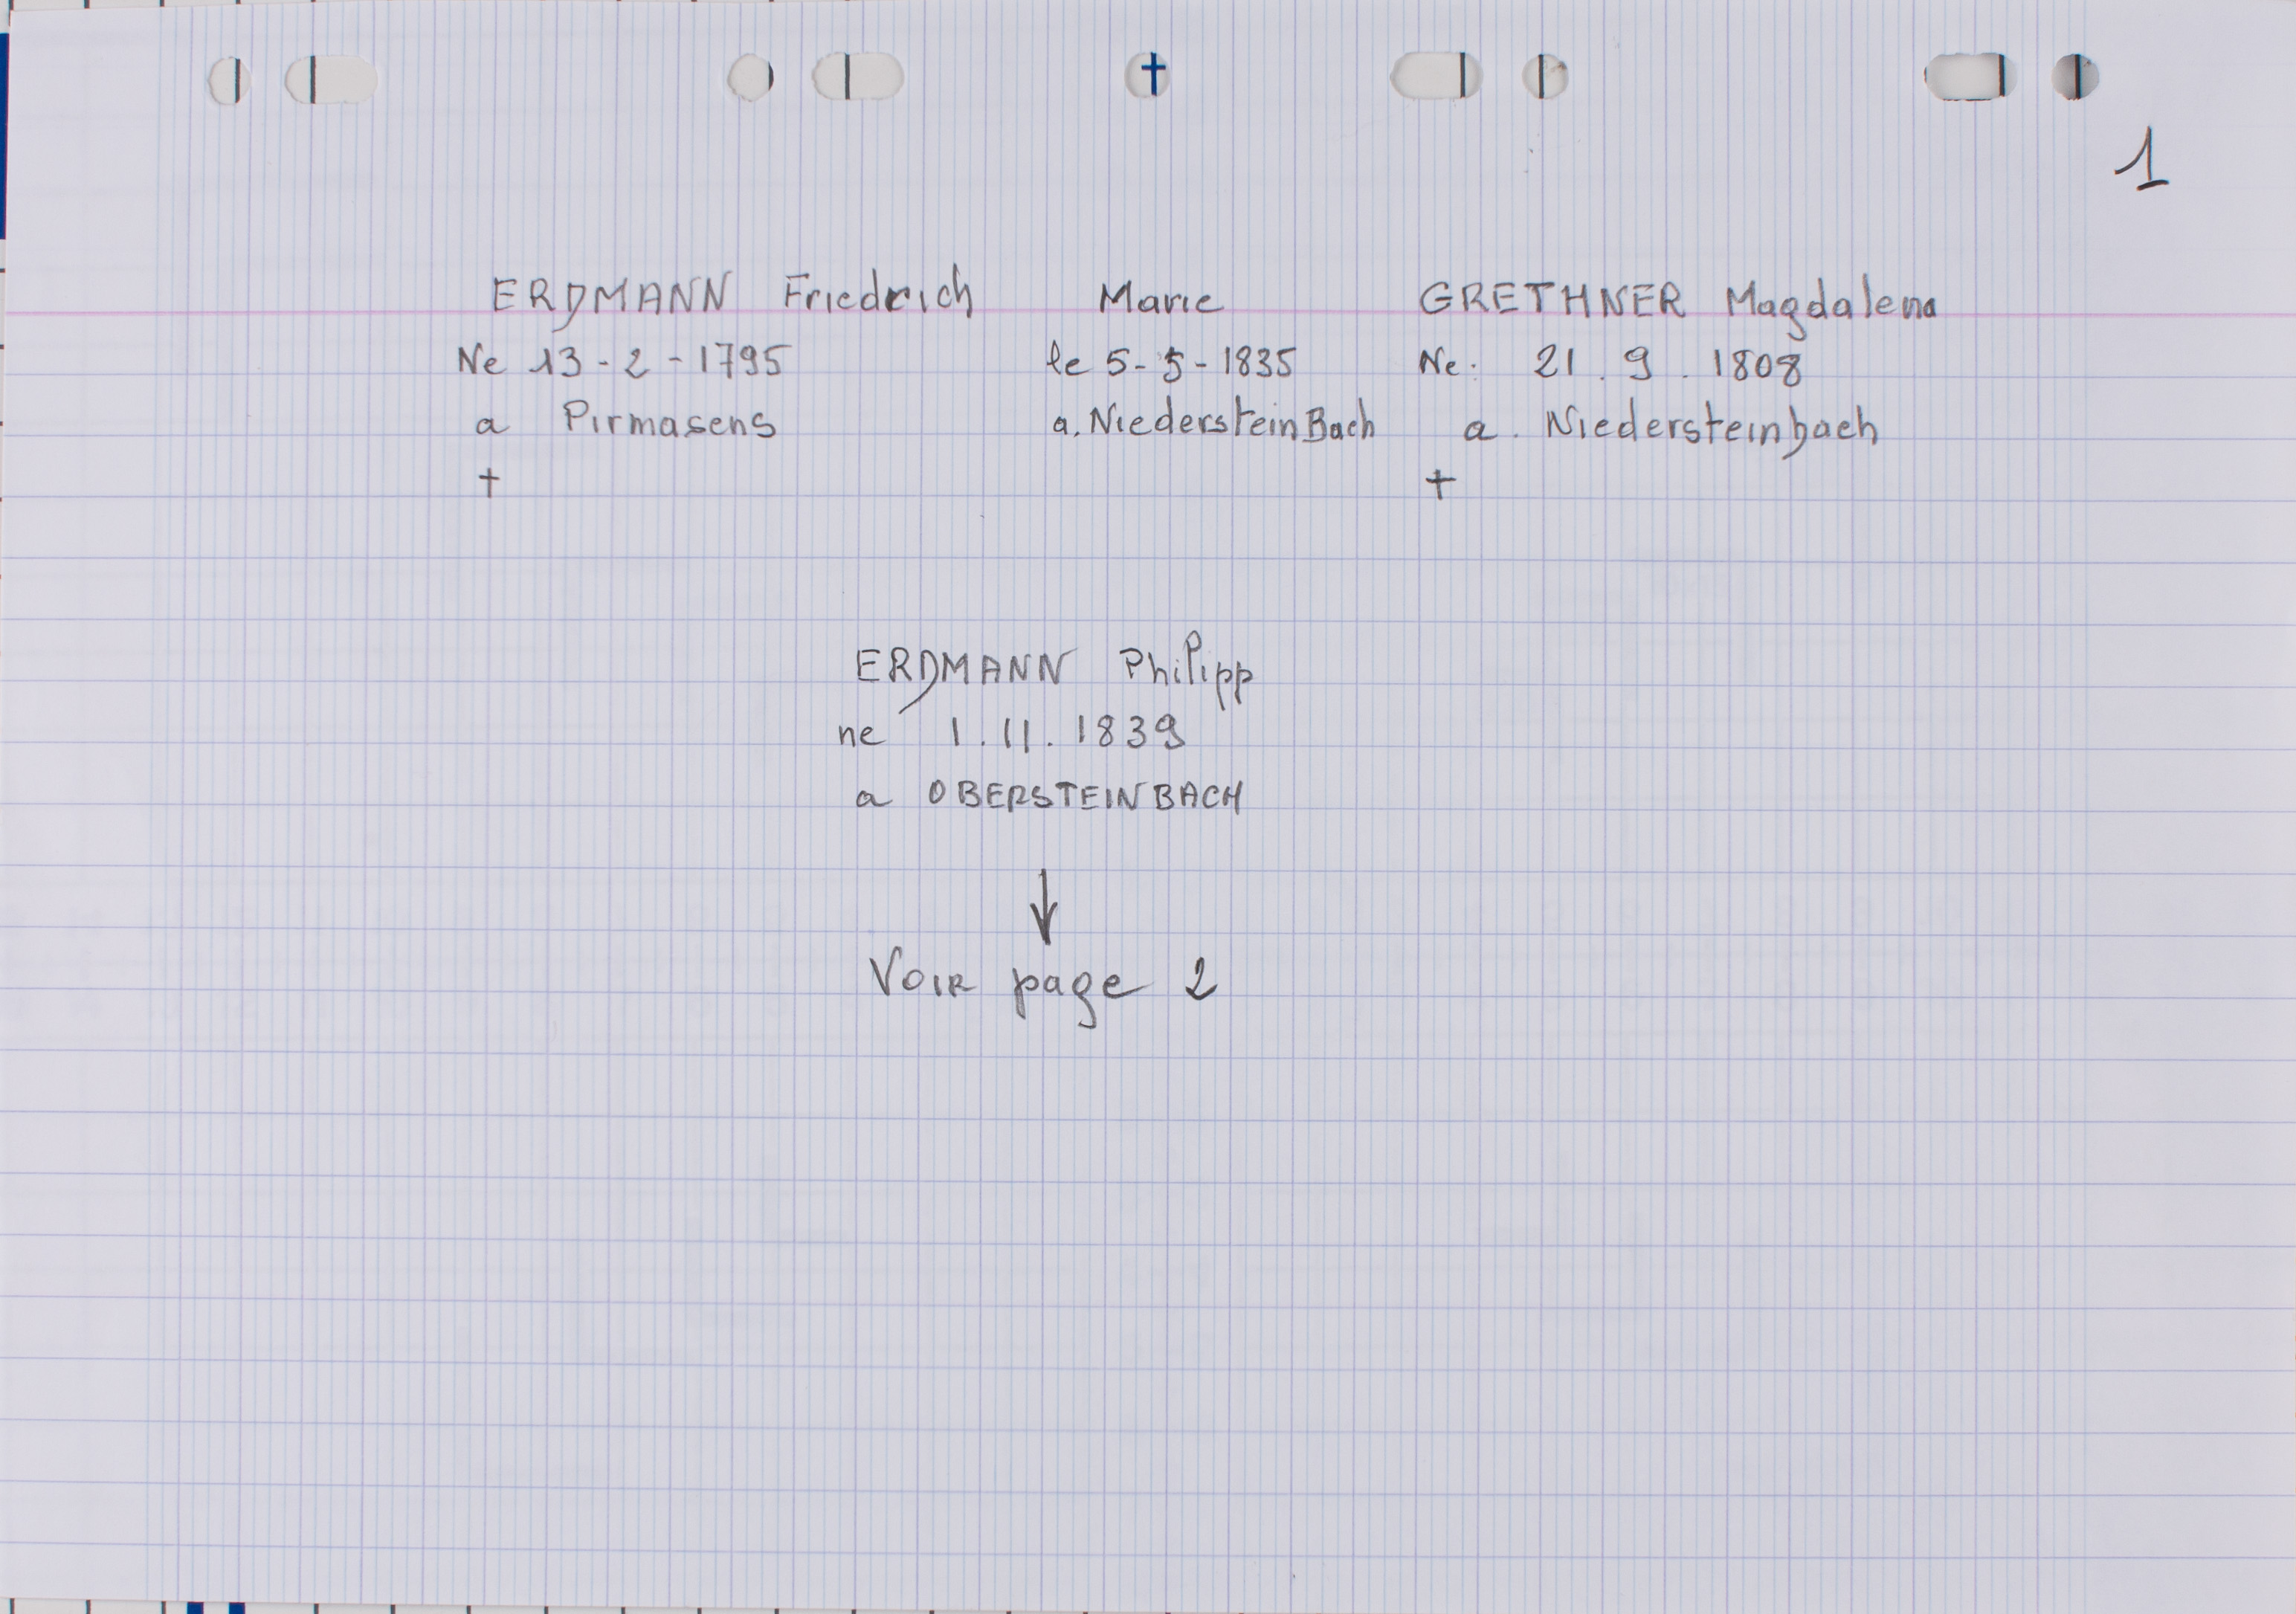 1
ERDMANN Friedrich Marie GRETHNER Magdalena
Ne 13-2-1795 le 5-5-1835 Ne. 21.9.1808
a Pirmasens a. NiedersteinBach a. Niedersteinbach
+ +
ERDMANN Philipp
ne 1.11.1839
a OBERSTEINBACH
↓
Voir page 2